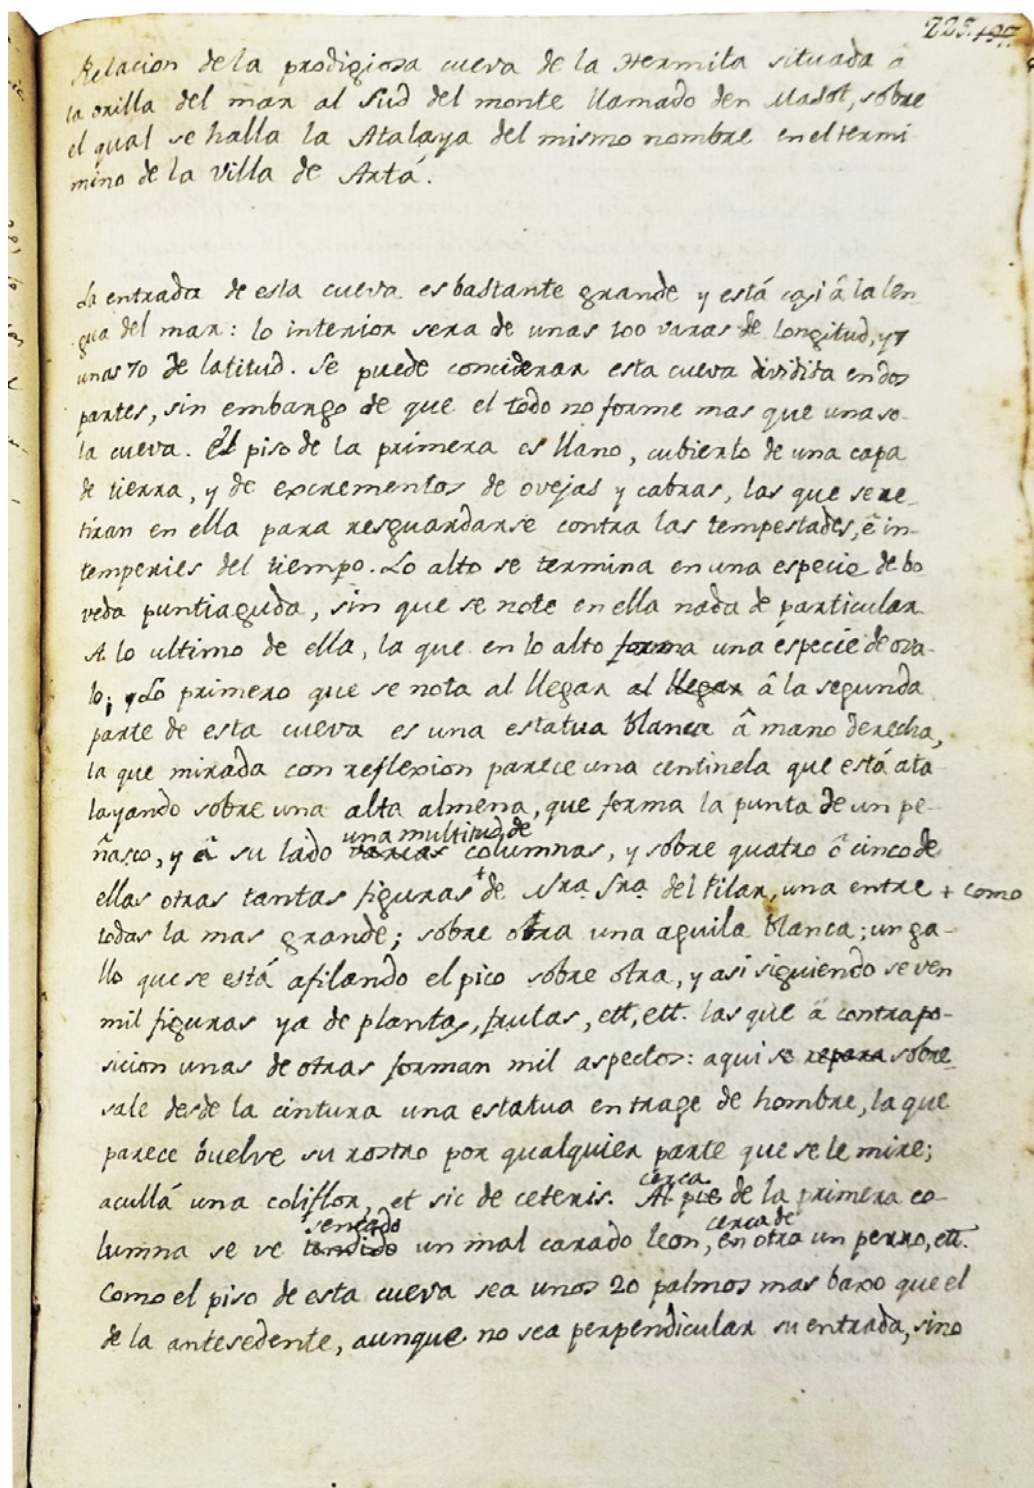 225. 197.
Relacion de la prodigiosa cueva de la Hermita situada a
la orilla del mar al Sud del monte llamado den Masot, sobre
el qual se halla la Atalaya del mismo nombre en el termi
mino de la villa de Artá.
La entrada de esta cueva es bastante grande y está casi â la len
gua del mar: lo interior sera de unas 100 varas de longitud, y
unas 70 de latitud. Se puede conciderar esta cueva dividida en dos
partes, sin embargo de que el todo no forme mas que una so-
la cueva. El piso de la primera es llano, cubierto de una capa
de tierra, y de excrementos de ovejas y cabras, las que se re-
tiran en ella para resguardarse contra las tempestades, ê in-
temperies del tiempo. Lo alto se termina en una especie de bo
veda puntiaguda, sin que se note en ella nada de particular
A lo ultimo de ella, la que en lo alto forma una especie de ova-
lo; y Lo primero que se nota al llegar al llegar â la segunda
parte de esta cueva es una estatua blanca â mano derecha,
la que mirada con reflexion parece una centinela que está ata-
layando sobre una alta almena, que forma la punta de un pe-
una multitud de
ñasco, y â su lado varias columnas, y sobre quatro ô cinco de
ellas otras tantas figuras + de Nra. Sra. del Pilar, una entre + como
todas la mas grande; sobre otra una aguila blanca; un ga-
llo que se está afilando el pico sobre otra, y asi siguiendo se ven
mil figuras ya de plantas, frutas, ett, ett. las que â contrapo-
sicion unas de otras forman mil aspectos: aqui se repara sobre-
sale desde la cintura una estatua en trage de hombre, la que
parece buelve su rostro por qualquier parte que se le mire;
cerca
acullá una coliflor, et sic de ceteris. Al pie de la primera co-
sentado cerca de
lumna se ve tendido un mal carado leon, en otra un perro, ett.
Como el piso de esta cueva sea unos 20 palmos mas baxo que el
de la antesedente, aunque no sea perpendicular su entrada, sino